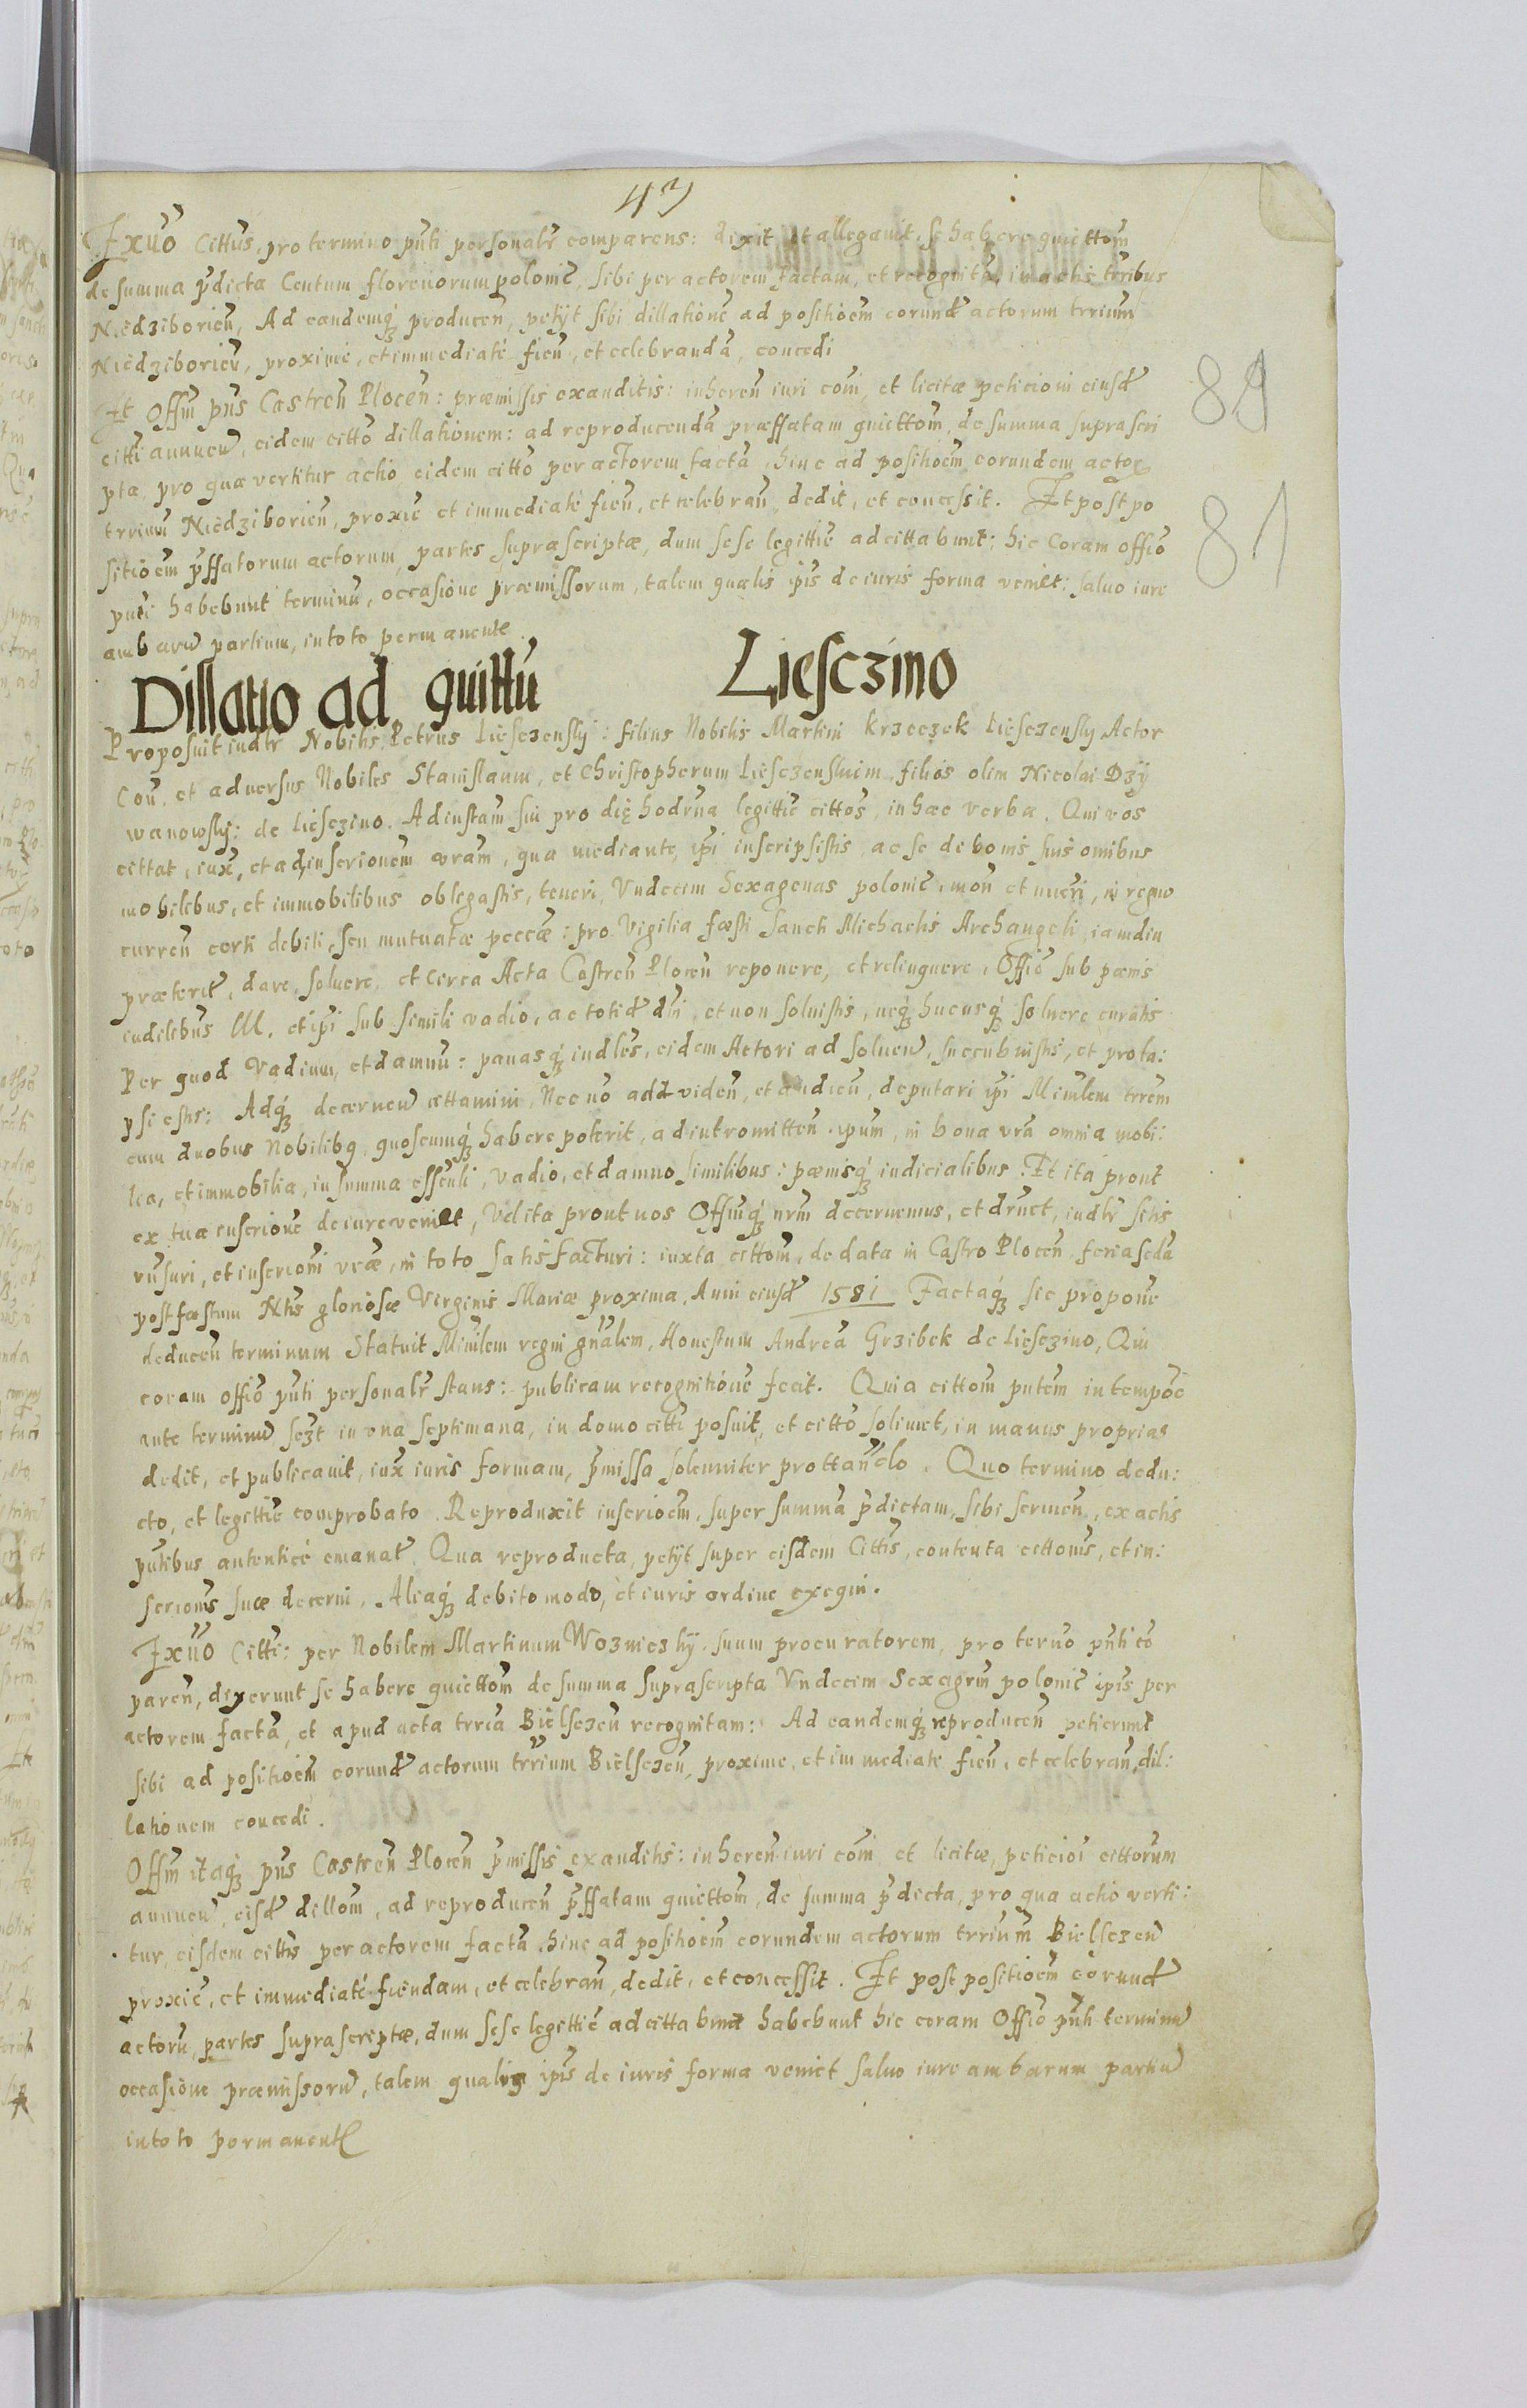 43
Exuo Cittus, pro termino pnti personalr comparens: dixit, et allegauit, se habere quiettom
de summa pdictæ Centum florenorum polonic, sibi per actorem factam, et recognita, in actis trribus
Niedziborien, Ad eandemq producen, petyt sibi dillatione ad positioem eorund actorum trrium
Niedziborien, proxime, et immediate fien, et celebranda, concedi
Et Offm pns Castren Plocen: præmissis exauditis: inheren iuri com, et licitæ peticioni eiusd
citti annuen, eidem citto dillationem: ad reproducenda præffatam quiettom, de summa suprascri
pta, pro qua vertitur actio eidem citto per actorem facta, hinc ad positioem eorundem actor
trrium Niedziborien, proxie et immediate fien, et celebran, dedit, et concessit. Et post po
sitioem pffatorum actorum, partes suprascriptæ, dum sese legittie adcittabunt: hic Coram offio
pnti habebunt terminu, occasione præmissorum, talem qualis ipis de iuris forma veniet: saluo iure
ambaru partium, in toto permanente.
89
81
Dillatio ad quittu Liesczino
Proposuit iudlr Nobilis Petrus Liesczensky: filius Nobilis Martini Krzeczek Liesczensky Actor
Con. et aduersus Nobiles Stanislaum, et Christopherum Liesczensluim filios olim Nicolai Dzy
wanowsky: de Liesczino. Ad instam sui pro die hodrna legittie cittos, in hæc verba. Qui vos
cittat, iux, et ad inscrionem vram, qua mediante, ipi inscripsistis, ac se de bonis suis omibus
mobilibus, et immobilibus oblegastis, teneri, Vndecim Sexagenas polonic, mon et nueri, in regno
curren certi debiti, seu mutuatæ peccæ: pro Vigilia fæsti Sancti Michaelis Archangeli, iamdiu
præterit, dare, soluere, et circa Acta Castren Plocen reponere, et relinquere, Offio sub pæmis
iudilibus M. et ipi sub simili vadio, ac totid dni, et non soluistis, neq hucusq soluere curatis
Per quod Vadium, et damnu: panasq iudles, eidem Actori ad soluen, succubuistis, et prola:
psi estis: Adq decernen cittamini, Nec no add viden, et audien, deputari ipi Minlem trrem
cum duobus Nobilibq, quoscumq habere poterit, ad intromitten ipum, in bona vra omnia mobi:
lia, et immobilia, in summa essenli, vadio, et damno similibus: pæmisq iudicialibus. Et ita prout
ex tua inscrione de iure veniet, Vel ita prout nos Offmq nrm decernemus, et drnct, iudlr sitis
rnsuri, et inscrioni vræ, in toto satisfacturi: iuxta cittom, de data in Castro Plocen feria scda
post fæstum Ntis gloriosæ Virginis Mariæ proxima, Anni eiusd 1581 Factaq sic propone
deducen terminum Statuit Minilem regni gnalem, Honestum Andrea Grzibek de Liesczino, Qui
coram offio pnti personalr stans: publicam recognitione fecit. Quia cittom pntem in tempoe
ante terminu sczt in vna septimana, in domo citti posuit, et citto soliuvet, in manus proprias
dedit, et publicauit, iux iuris formam, pmissa solemniter prottando. Quo termino dedu:
cto, et legittie comprobato. Reproduxit inscrioem, super summa pdictam, sibi seruien, ex actis
pntibus autentice emanat. Qua reproducta, petyt super eisdem Cittis, contenta cittonis, et in:
scrionis suæ decerni, Aliaq debito modo, et iuris ordine exequi.
Exuo Citti: per Nobilem Martinum Woznicsky. suum procuratorem, pro terno pnti co
paren, dixerunt se habere quiettom de summa suprascripta Vndecim Sexagrm polonic ipis per
actorem facta, et apud acta trria Bielscen recognitam: Ad eandemq reproducen petierunt
sibi ad positioem eorund actorum trrium Bielscen, proxime, et immediate fien, et celebran, dil:
lationem concedi.
Offm itaq pns Castren Plocen pmissis exauditis: inheren iuri com et licitæ, peticioi cittorum
annuen, eisd dillom, ad reproducen pffatam quiettom, de summa pdicta, pro qua actio verti:
tur, eisdem cittis per actorem facta, hinc ad positioem eorundem actorum trrium Bielsczen
proxie, et immediate fiendam, et celebran, dedit, et concessit. Et post positioem eorund
actoru, partes suprascriptæ, dum sese legittie adcittabunt habebunt hic coram Offio pnti terminu
occasione præmissoru, talem qualis ipis de iuris forma veniet saluo iure ambarum partiu
in toto permanente